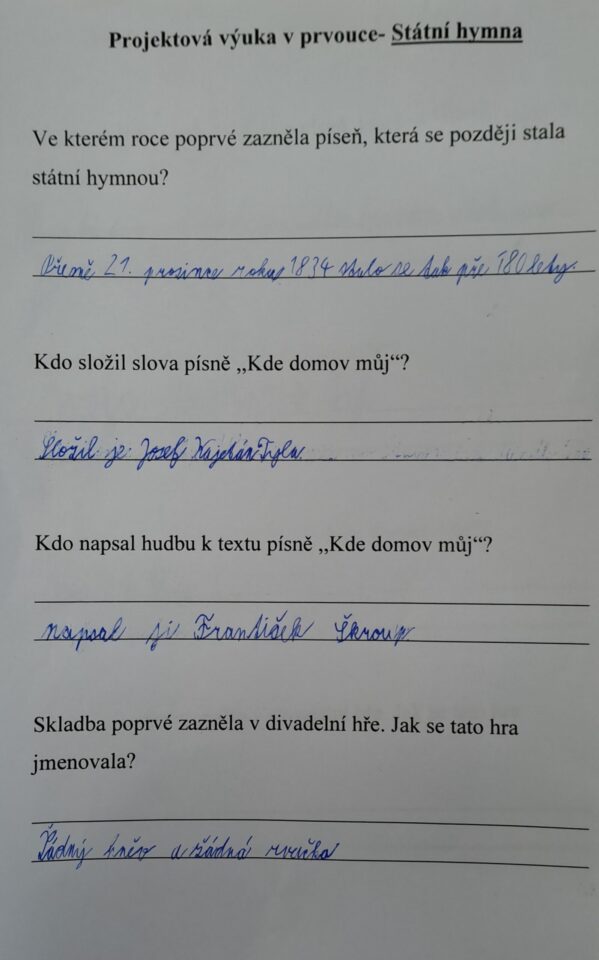 Projektová výuka v prvouce- Státní hymna
Ve kterém roce poprvé zazněla píseň, která se později stala
státní hymnou?
21. prosince roku 1834 stalo se tak pře 180 lety.
Kdo složil slova písně ,,Kde domov můj“?
Složil je Josef Kajetán Tyla
Kdo napsal hudbu k textu písně ,,Kde domov můj“?
napsal ji František Škroup
Skladba poprvé zazněla v divadelní hře. Jak se tato hra
jmenovala?
Žádný hněv a žádná rvačka